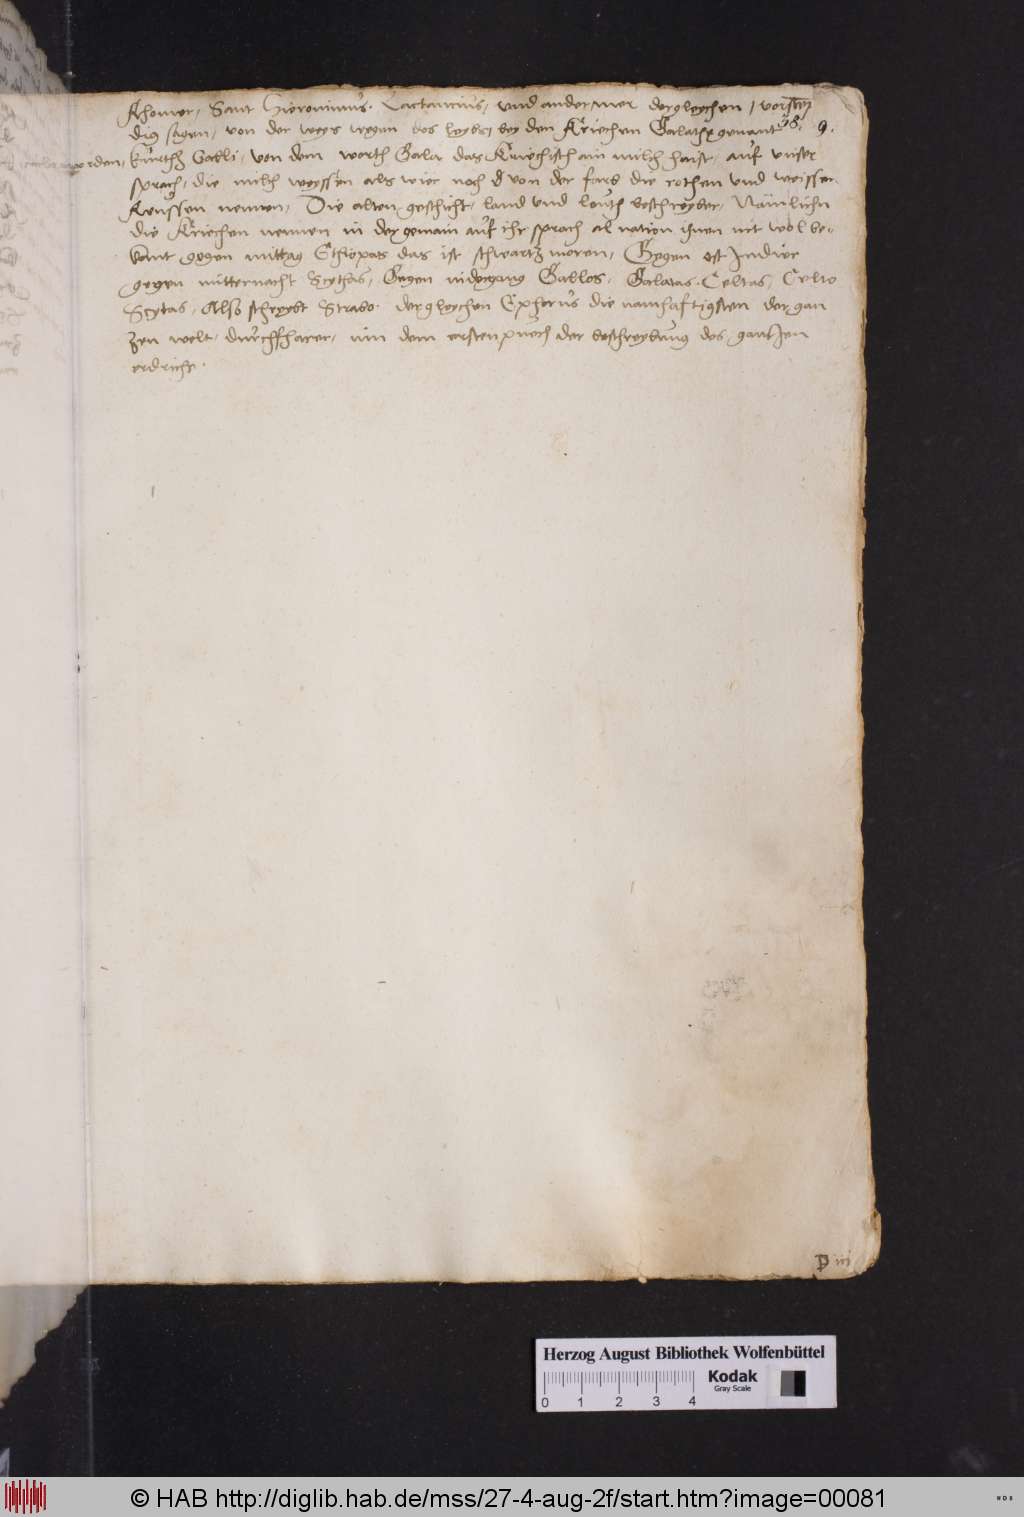 Rhomer, Sant Hieronimus. Lactancius, und ander mer dergleychen, vorsten
dig sagen, von der weys wegen des leybs, bey den Kriechen Galathe genant
38. 9.
worden, kürtzh Galli, von dem worth Gala das Kriechisch ain milch haist, auf unser
sprach, die milch weyssen als wier noch von der farb die rothen und weissen
Reussen nennen, Die alten geschicht, land und leuth beschreyber, Nämlichn
die Kriechen nennen in der gemain auf ihr sprach al nation ihnen nit wol be-
kant gegen mittag Ethiopas das ist schwartz moren, Gegen ost Indier
gegen mitternacht Scythas, Gegen nidergang Gallos, Galatas. Celtas, Celto
Scytas, Also schreybt Strabo. dergleychen Ephorus die namhaftigsten der gan
zen welt, durchfharer, im dem ersten puech der beschreybung des gantzen
erdricht.
D iii
Herzog August Bibliothek Wolfenbüttel
Kodak
Gray Scale
0 1 2 3 4
© HAB http://diglib.hab.de/mss/27-4-aug-2f/start.htm?image=00081